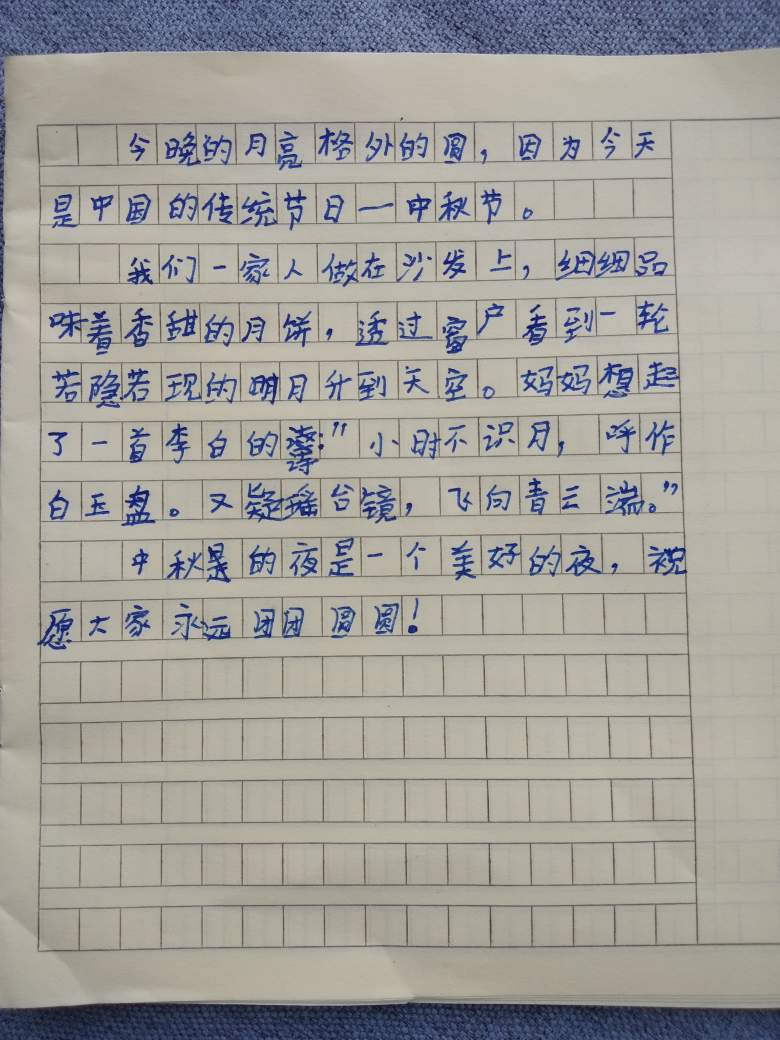 今晚的月亮格外的圆，因为今天
是中国的传统节日一中秋节。
我们一家人做在沙发上，细细品
味着香甜的月饼，透过窗户看到一轮
若隐若现的明月升到天空。妈妈想起
了一首李白的诗：”小时不识月，呼作
白玉盘。又疑瑶台镜，飞向青云端。”
中秋的夜是一个美好的夜，祝
愿大家永远团团圆圆！